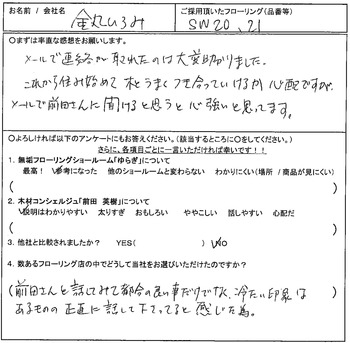 お名前 / 会社名
ご採用頂いたフローリング(品番等)
金丸ひろみ
SW20、21
○まずは率直な感想をお願いします。
メールで連絡が取れたのは大変助かりました。
これから住み始めて木とうまくつき合っていけるか心配ですが、
メールで前田さんに聞けると思うと心強いと思ってます。
○よろしければ以下のアンケートにもお答えください。(該当するところに○をしてください。)
さらに、各項目ごとに一言いただければ幸いです！！
1. 無垢フローリングショールーム「ゆらぎ」について
最高！ 参考になった 他のショールームと変わらない わかりにくい(場所 / 商品が見にくい)
( )
2. 木材コンシェルジュ「前田 英樹」について
説明はわかりやすい 太りすぎ おもしろい ややこしい 話しやすい 心配だ
( )
3. 他社と比較されましたか？ YES( ) NO
4. 数あるフローリング店の中でどうして当社をお選びいただけたのですか？
(前田さんと話してみて都合の良い事だけでなく、冷たい印象は
あるものの正直に話して下さってると感じた為。)